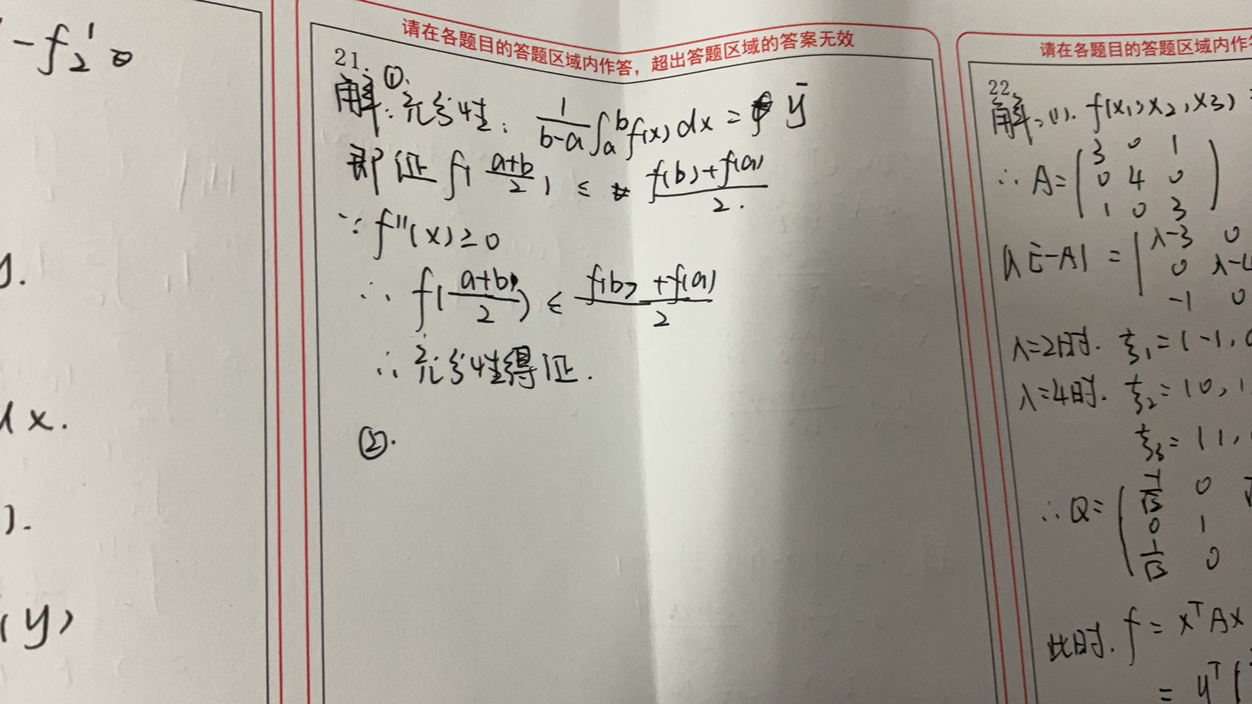 -f₂' =
y.
dx.
).
(y)
请在各题目的答题区域内作答，超出答题区域的答案无效
21.
解: ①. 充分性: 1/(b-a) ∫ₐᵇ f(x) dx = ȳ
即证 f(a+b/2) ≤ (f(b)+f(a))/2.
∵ f''(x) ≥ 0
∴ f(a+b/2) ≤ (f(b)+f(a))/2
∴ 充分性得证.
②.
请在各题目的答题区域内作
22.
解: (1). f(x₁,x₂,x₃) =
∴ A= (3 0 1
0 4 0
1 0 3)
|λE-A| = |λ-3 0
0 λ-4
-1 0
λ=2时. ξ₁=(-1,0
λ=4时. ξ₂=(0,1
ξ₃=(1,
∴ Q=
0 1
0
此时. f = xᵀAx
= yᵀ(